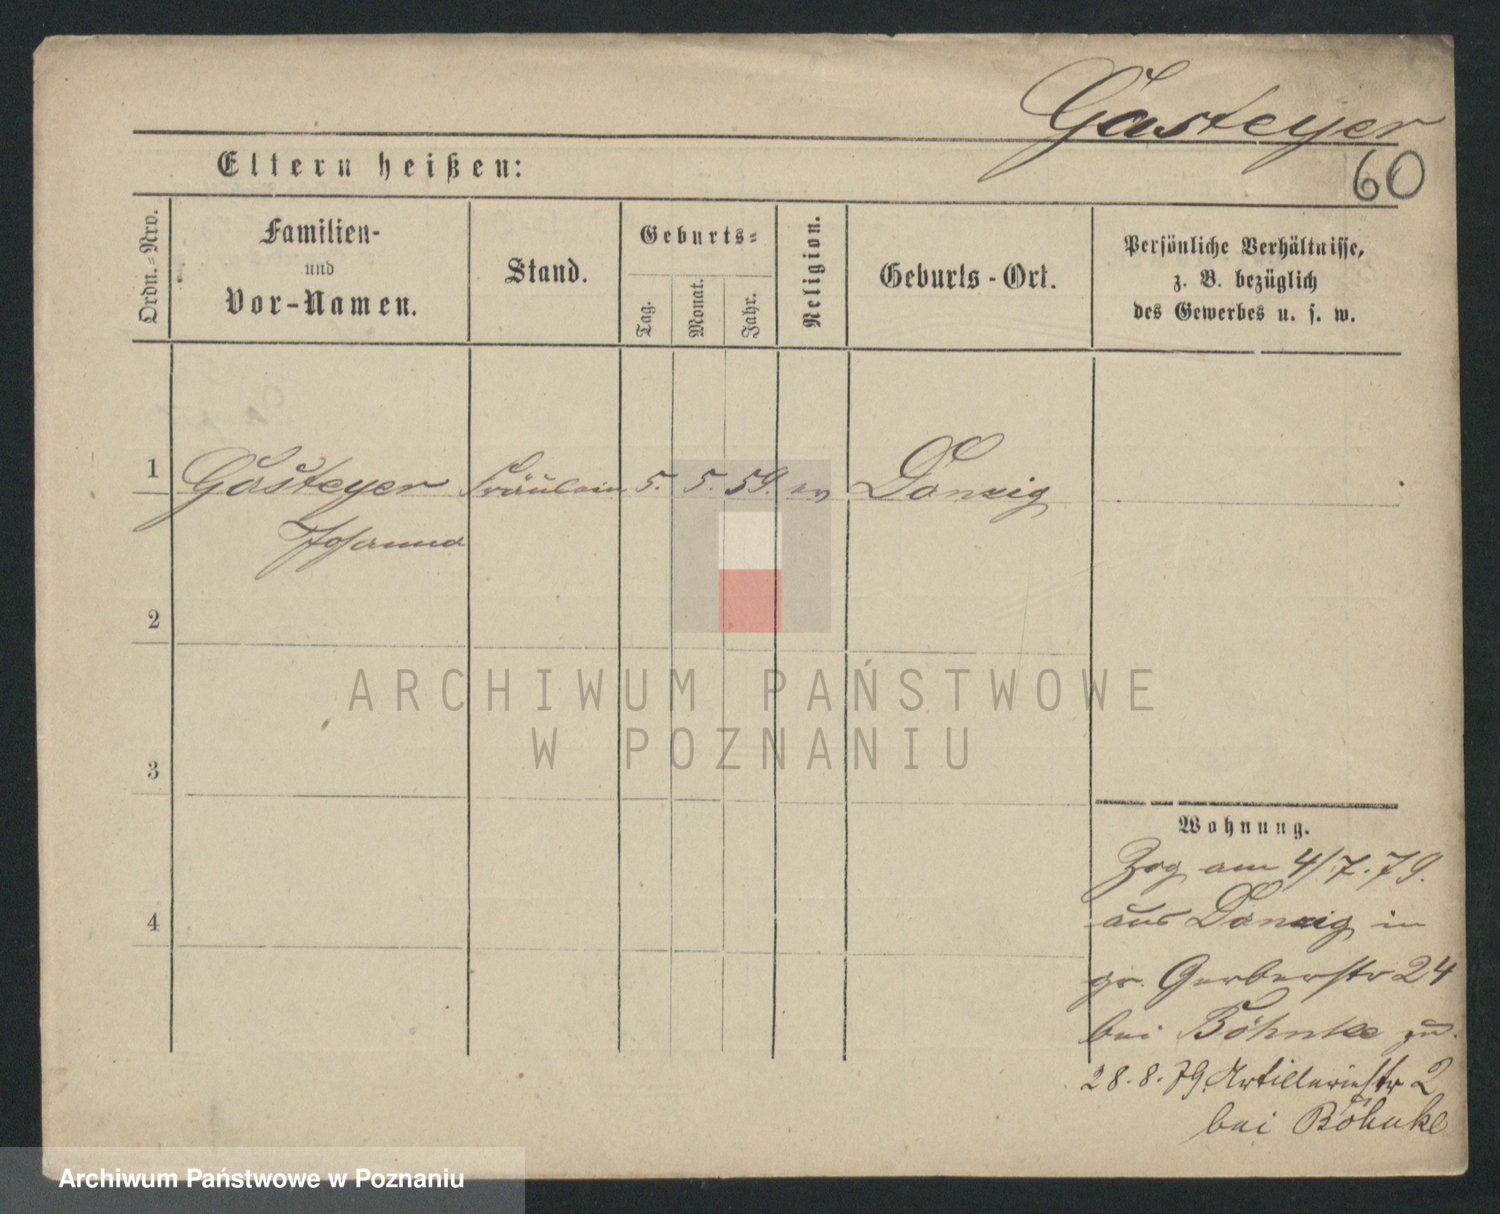 Gasteyer
60
Eltern heißen:
Ordn.-Nro.
Familien-
und
Vor-Namen.
Stand.
Geburts-
Tag.
Monat.
Jahr.
Religion.
Geburts-Ort.
Persönliche Verhältnisse,
z. B. bezüglich
des Gewerbes u. s. w.
1 Gasteyer Fräulein 5. 5. 59. ev Danzig
Johanna
2
3
4
ARCHIWUM PAŃSTWOWE
W POZNANIU
Wohnung.
Zog am 4/7.79.
aus Danzig in
gr. Gerberstr 24
bei Böhnke zu.
28.8.79 Artilleriestr 2
bei Böhnke
Archiwum Państwowe w Poznaniu